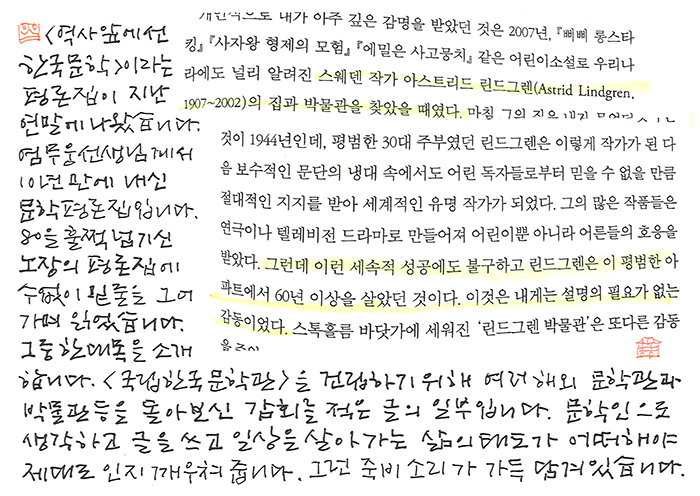 <역사앞에선
한국문학>이라는
평론집이 지난
연말에 나왔습니다.
염무웅선생님께서
10년만에 내신
문학평론집입니다.
80을 훌쩍 넘기신
노장의 평론집에
수없이 밑줄을 그어
가며 읽었습니다.
그중 한대목을 소개
개인적으로 내가 아주 깊은 감명을 받았던 것은 2007년, 『삐삐 롱스타
킹』 『사자왕 형제의 모험』 『에밀은 사고뭉치』 같은 어린이소설로 우리나
라에도 널리 알려진 스웨덴 작가 아스트리드 린드그렌(Astrid Lindgren,
1907~2002)의 집과 박물관을 찾았을 때였다. 마침 그의 집은
것이 1944년인데, 평범한 30대 주부였던 린드그렌은 이렇게 작가가 된 다
음 보수적인 문단의 냉대 속에서도 어린 독자들로부터 믿을 수 없을 만큼
절대적인 지지를 받아 세계적인 유명 작가가 되었다. 그의 많은 작품들은
연극이나 텔레비전 드라마로 만들어져 어린이뿐 아니라 어른들의 호응을
받았다. 그런데 이런 세속적 성공에도 불구하고 린드그렌은 이 평범한 아
파트에서 60년 이상을 살았던 것이다. 이것은 내게는 설명의 필요가 없는
감동이었다. 스톡홀름 바닷가에 세워진 ‘린드그렌 박물관’은 또다른 감동
을 주어
합니다. <국립한국문학관>을 건립하기위해 여러 해외 문학관과
박물관등을 돌아보신 감회를 적은 글의 일부입니다. 문학인으로
생각하고 글을 쓰고 일상을 살아가는 삶의 태도가 어떠해야
제대로 인지 깨우쳐 줍니다. 그런 죽비 소리가 가득 담겨있습니다.